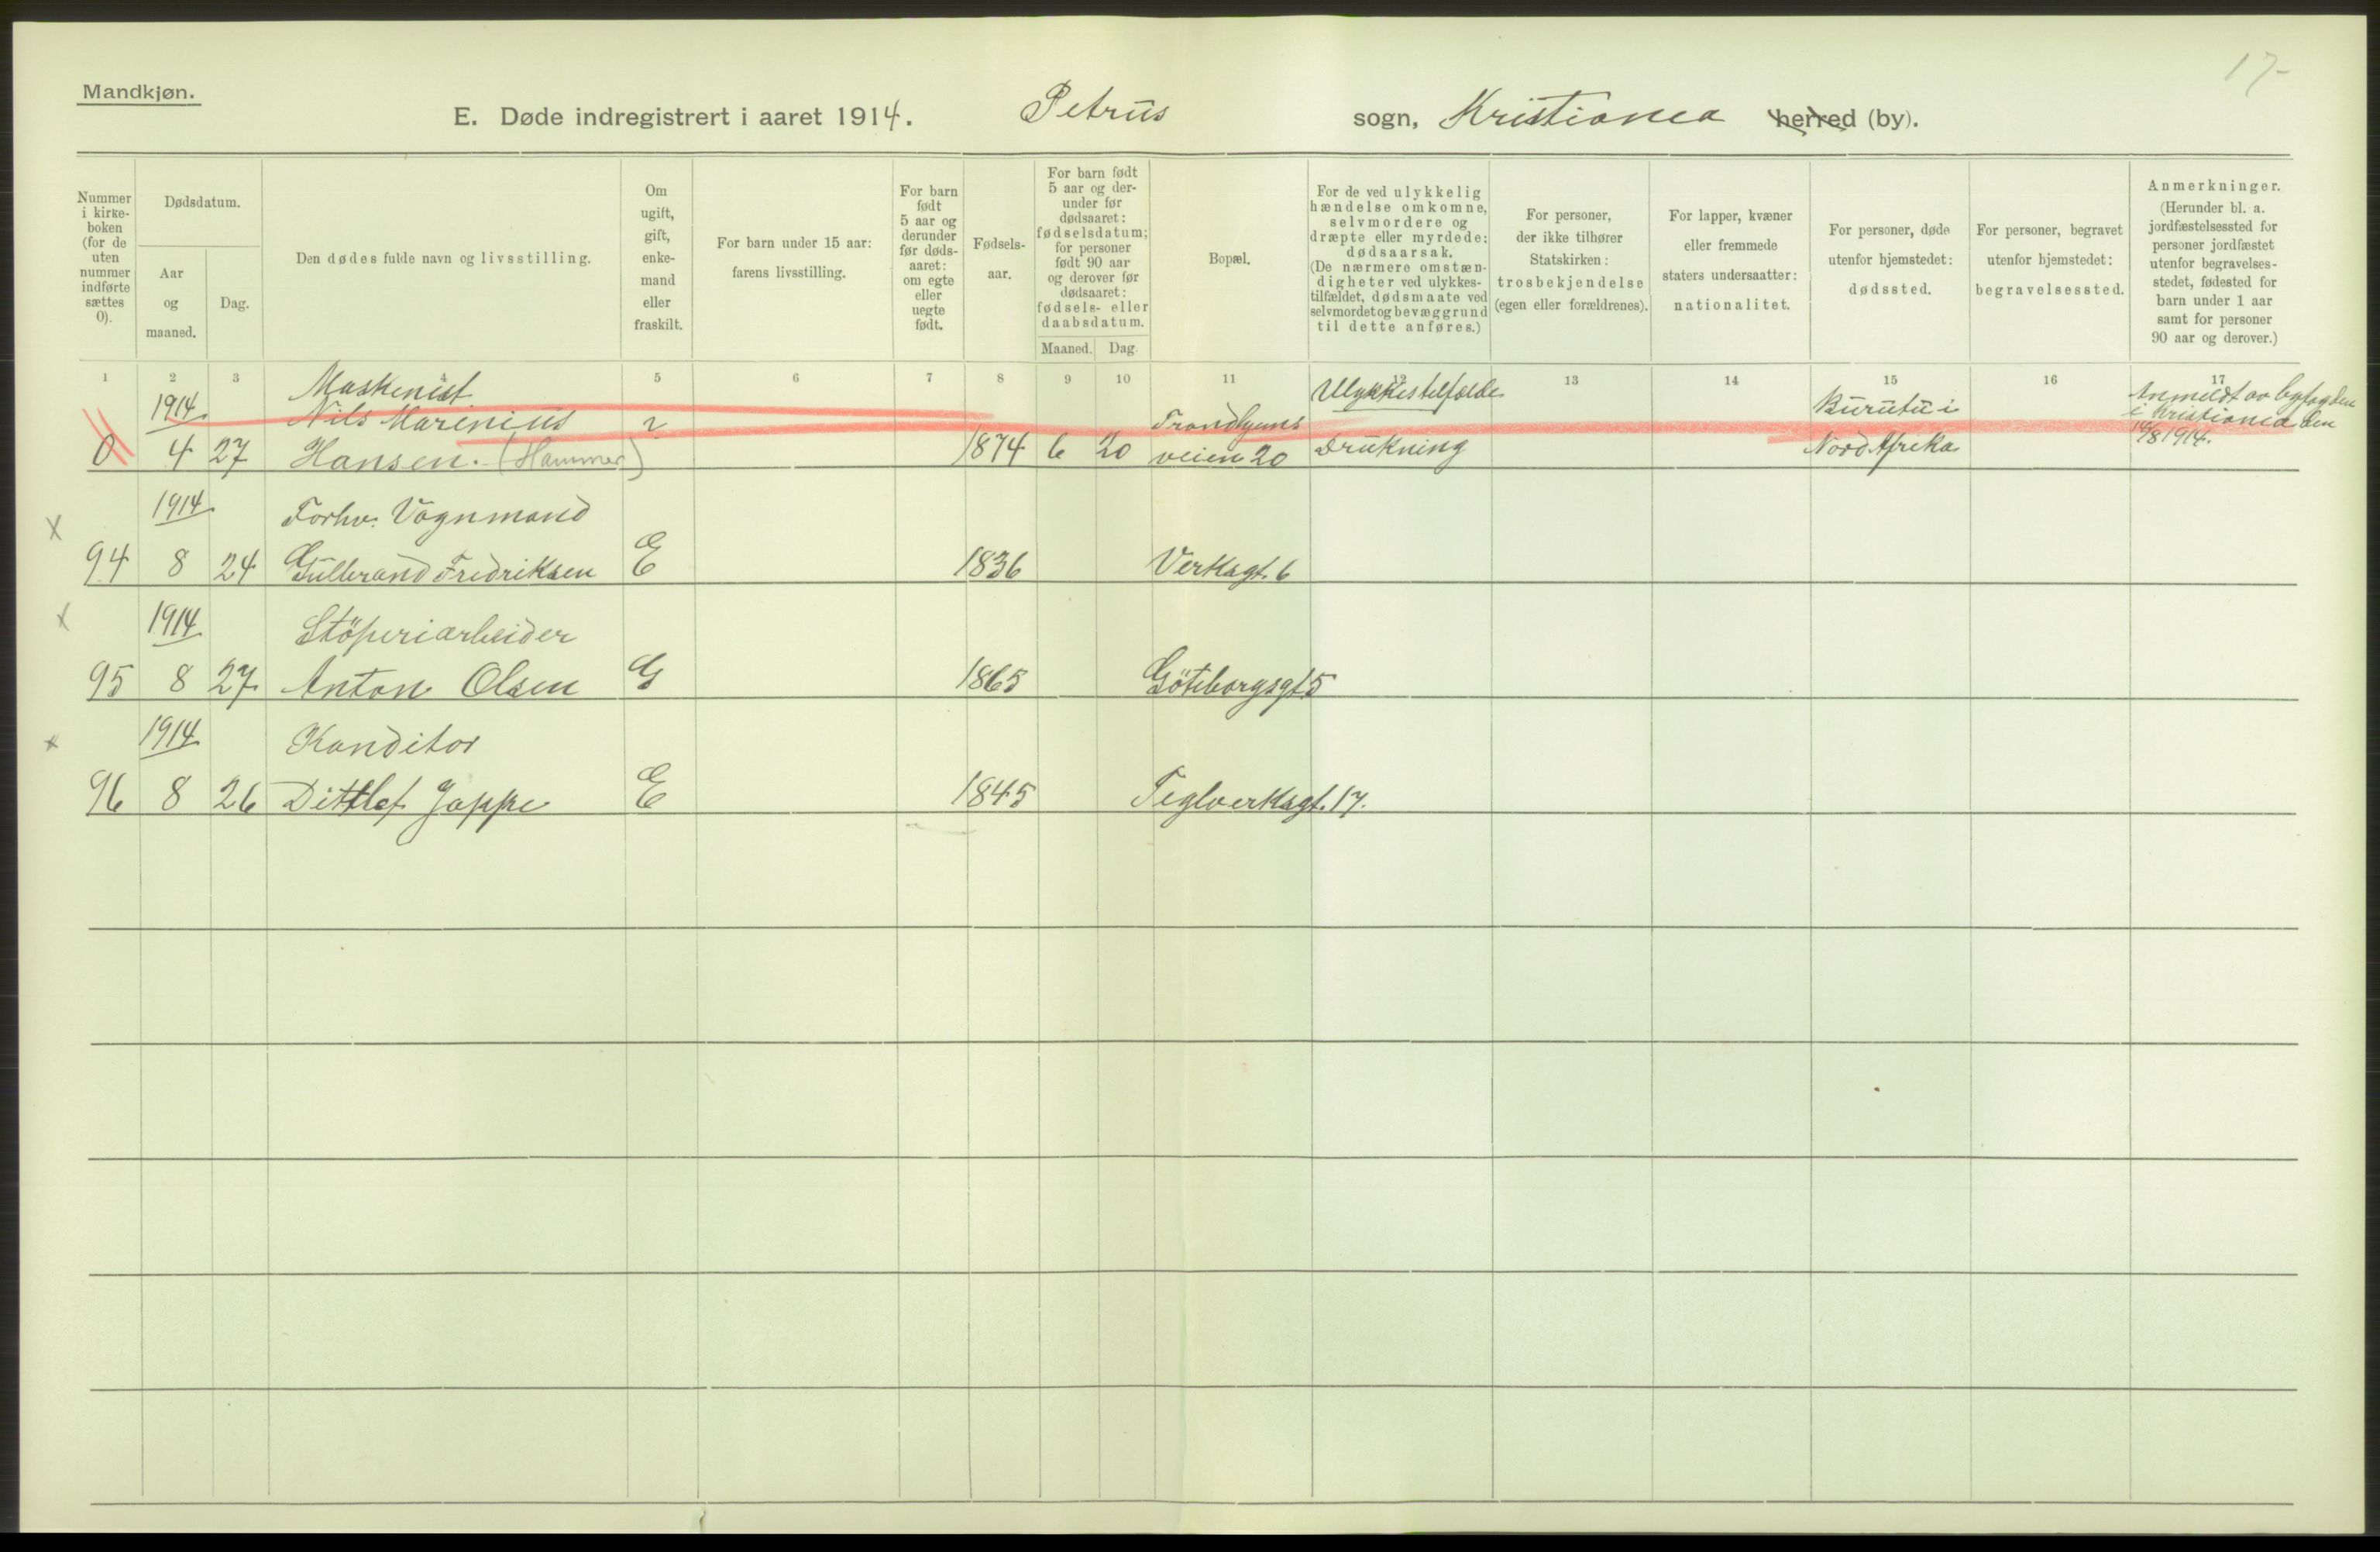 17-
Mandkjøn.
E. Døde indregistrert i aaret 1914. Petrus sogn, Kristiania herred (by).
Nummer i kirke-boken (for de uten nummer indførte sættes 0).
Dødsdatum.
Aar og maaned.
Dag.
Den dødes fulde navn og livsstilling.
Om ugift, gift, enke-mand eller fraskilt.
For barn under 15 aar: farens livsstilling.
For barn født 5 aar og derunder før døds-aaret: om egte eller uegte født.
Fødsels-aar.
For barn født 5 aar og der-under før dødsaaret: fødselsdatum; for personer født 90 aar og derover før dødsaaret: fødsels- eller daabsdatum.
Maaned. Dag.
Bopæl.
For de ved ulykkelig hændelse omkomne, selvmordere og dræpte eller myrdede: dødsaarsak. (De nærmere omstæn-digheter ved ulykkes-tilfældet, dødsmaate ved selvmordet og bevæggrund til dette anføres.)
For personer, der ikke tilhører Statskirken: trosbekjendelse (egen eller forældrenes).
For lapper, kvæner eller fremmede staters undersaatter: nationalitet.
For personer, døde utenfor hjemstedet: dødssted.
For personer, begravet utenfor hjemstedet: begravelsessted.
Anmerkninger. (Herunder bl. a. jordfæstelsessted for personer jordfæstet utenfor begravelses-stedet, fødested for barn under 1 aar samt for personer 90 aar og derover.)
1 2 3 4 5 6 7 8 9 10 11 12 13 14 15 16 17
Maskenist Ulykkestilfælde Anmeldt av byfogden
1914 Nils Marinius ? Trondhjems Burutu i i Kristiania den
0 4 27 Hansen. (Hammer) 1874 6 20 veien 20 Drukning Nord Afrika 14/8 1914.
1914 Forhv. Vognmand
94 8 24 Gulbrand Fredriksen E 1836 Verksgt. 6
1914 Stöperiarbeider
95 8 27 Anton Olsen G 1865 Göteborgsgt 5
1914 Konditor
96 8 26 Dittlef Jappe E 1845 Teglverksgt. 17.